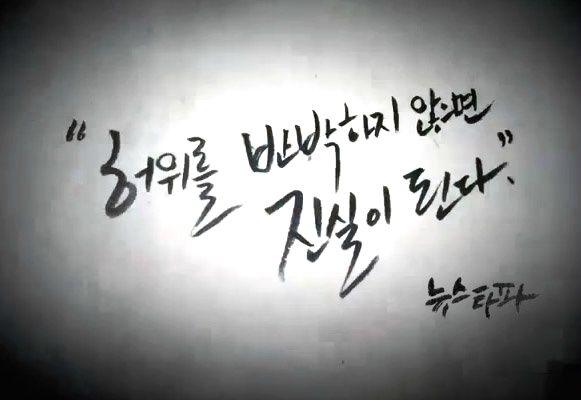 “허위를 반박하지 않으면
진실이 된다.”
뉴스타파